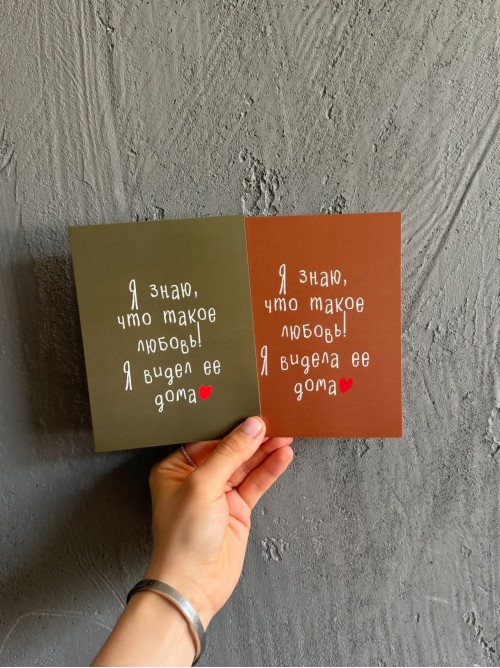 Я знаю,
что такое
любовь!
Я видел ее
дома
Я знаю,
что такое
любовь!
Я видела ее
дома